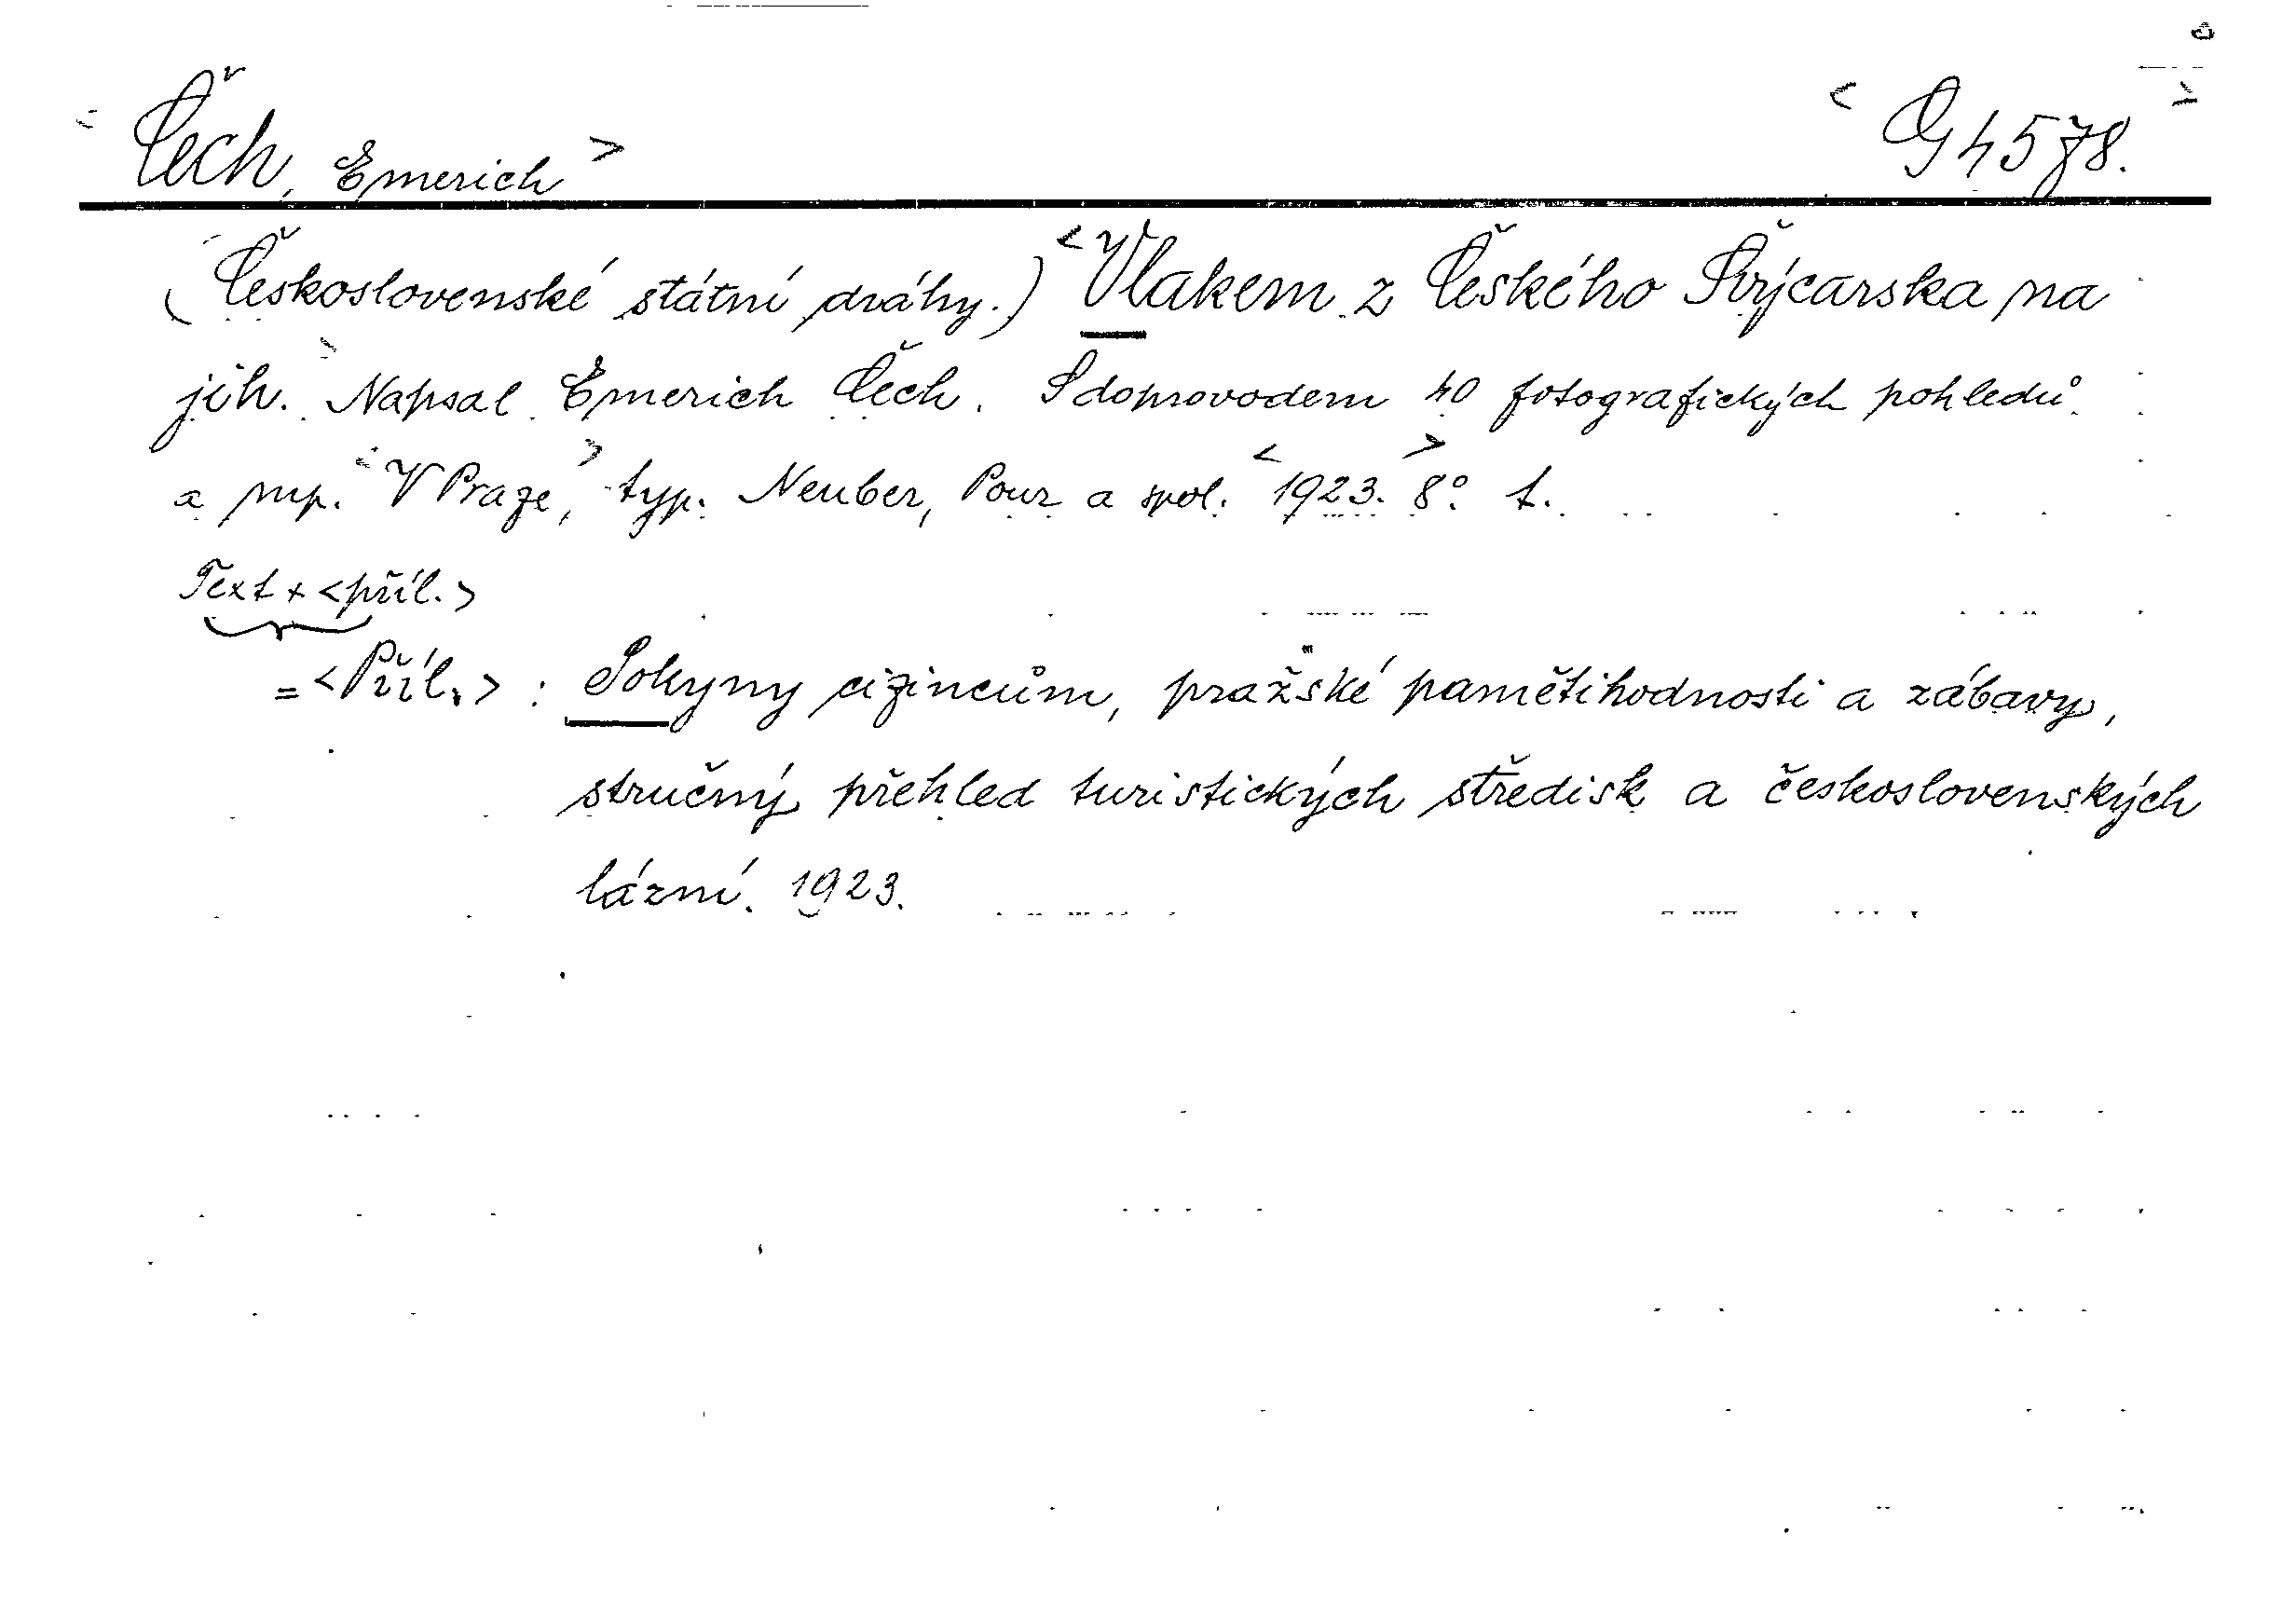 <Čech, Emerich> <G 4578.>
(Československé státní dráhy.) <Vlakem z Českého Švýcarska na
jih.> Napsal Emerich Čech. S doprovodem 40 fotografických pohledů
a map. <V Praze,> typ. Neuber, Pour a spol. <1923.> 8°. 1.
Text + <příl.>
= <Příl.> : Pokyny cizincům, pražské pamětihodnosti a zábavy,
stručný přehled turistických středisk a československých
lázní. 1923.